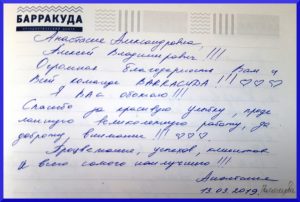 БАРРАКУДА
Анастасия Александровна,
Алексей Владимирович !!!
Огромная благодарность Вам и
Всей команде BARRACUDA !!! ♡♡♡
Я ВАС обожаю !!!
Спасибо за красивую улыбку, проде-
ланную великолепную работу, за
доброту, внимание !!! ♡♡♡
Процветания, успехов, клиентов
и всего самого наилучшего !!!
Анастасия
13.03.2019